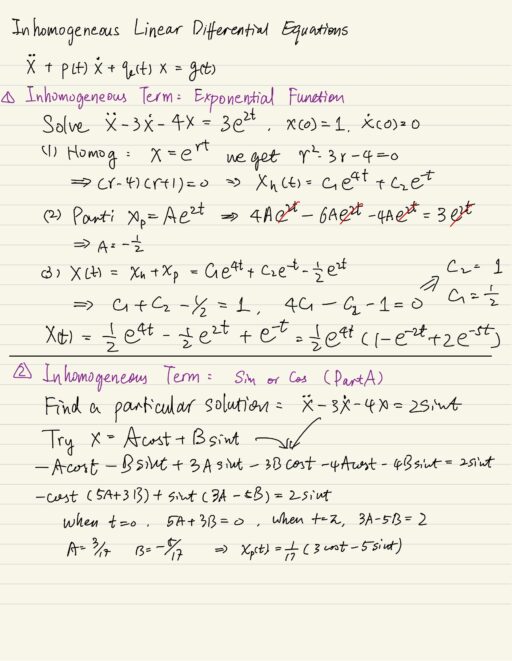 Inhomogeneous Linear Differential Equations
ẍ + p(t) ẋ + q(t) x = g(t)
① Inhomogeneous Term: Exponential Function
Solve ẍ - 3ẋ - 4x = 3e^{2t}, x(0) = 1, ẋ(0) = 0
(1) Homog: x = e^{rt} we get r² - 3r - 4 = 0
⇒ (r-4)(r+1) = 0 ⇒ x_h(t) = c₁e^{4t} + c₂e^{-t}
(2) Parti x_p = Ae^{2t} ⇒ 4Ae^{2t} - 6Ae^{2t} - 4Ae^{2t} = 3e^{2t}
⇒ A = -1/2
(3) x(t) = x_h + x_p = c₁e^{4t} + c₂e^{-t} - 1/2 e^{2t}
⇒ c₁ + c₂ - 1/2 = 1, 4c₁ - c₂ - 1 = 0 ⇒ c₂ = 1
c₁ = 1/2
x(t) = 1/2 e^{4t} - 1/2 e^{2t} + e^{-t} = 1/2 e^{4t} (1 - e^{-2t} + 2e^{-5t})
② Inhomogeneous Term: Sin or Cos (Part A)
Find a particular solution: ẍ - 3ẋ - 4x = 2sint
Try x = Acost + Bsint
-Acost - Bsint + 3Asint - 3Bcost - 4Acost - 4Bsint = 2sint
-cost (5A+3B) + sint (3A-5B) = 2sint
when t=0, 5A+3B=0, when t=π/2, 3A-5B=2
A=3/17 B=-5/17 ⇒ x_p(t) = 1/17 (3cost - 5sint)